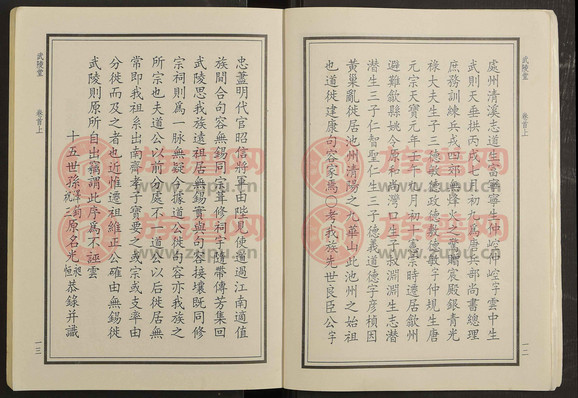 武陵堂
卷首上
處州清溪志道生富寧寧生仲崆仲崆字雲中生
武則天垂拱丙戌七月初九爲唐兵部尚書總理
庶務訓練兵戎四郊無烽火之驚闕宸殿銀青光
祿大夫生子三德敏德政德敷德敷字仲規生唐
元宗天寶元年壬午九月初十憲宗時遷居歙州
避難歙縣姚今原和尚灣口生子寂淵淵生志潛
潛生三子仁智聖仁生三子德義道德字彦楨因
黃巢亂徙居池州清陽之九華山此池州之始祖
也道徙建康句容家焉○考我族先世良臣公字
一二
武陵堂
卷首上
忠藎明代官昭信將軍由陛見使還過江南適值
族間合句容無錫同宗葺修祠宇隨帶傳芳集回
武陵思我族遠祖居無錫實與句容接壤既同修
宗祠則爲一脉無疑今據道公徙句容亦我族之
所宗也夫道公以前分處不一道公以后徙居無
常即我祖系出南齊孝子寶要之或宗或支率由
分徙而及之者也近惟遷祖維正公確由無錫徙
武陵則原所自出竊謂此序爲不誣雲
十五世孫
原名光
恭錄并識
一三